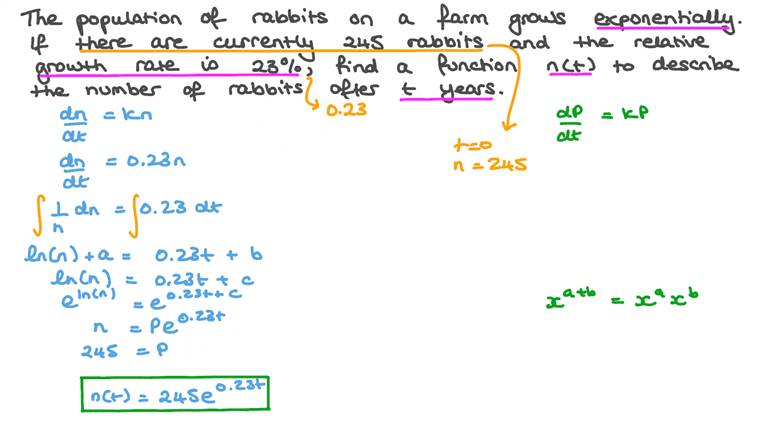 The population of rabbits on a farm grows exponentially.
If there are currently 245 rabbits and the relative
growth rate is 23%, find a function n(t) to describe
the number of rabbits after t years.
0.23
dn/dt = kn
dP/dt = kP
t=0
n = 245
dn/dt = 0.23n
∫ 1/n dn = ∫ 0.23 dt
ln(n) + a = 0.23t + b
ln(n) = 0.23t + c
e^ln(n) = e^0.23t+c
x^a+b = x^a x^b
n = Pe^0.23t
245 = P
n(t) = 245e^0.23t